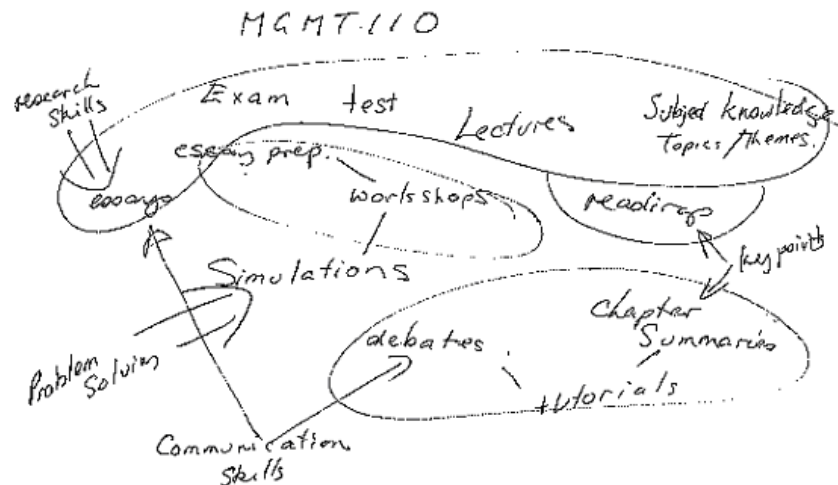 MGMT.110
research
skills
Exam test
Lectures
Subject knowledge
topics/themes.
essay prep.
essays
workshops
readings
key points
Simulations
Chapter
Summaries
debates
tutorials
Problem
Solving
Communication
Skills